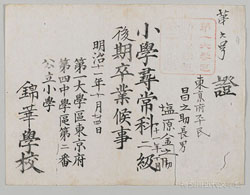 第六号
證
東京府平民
昌之助長男
塩原金之助
小學尋常科二級
後期卒業候事
明治十一年十月廿四日
第一大學區東京府
第四中學區第二番
公立小學
錦華學校